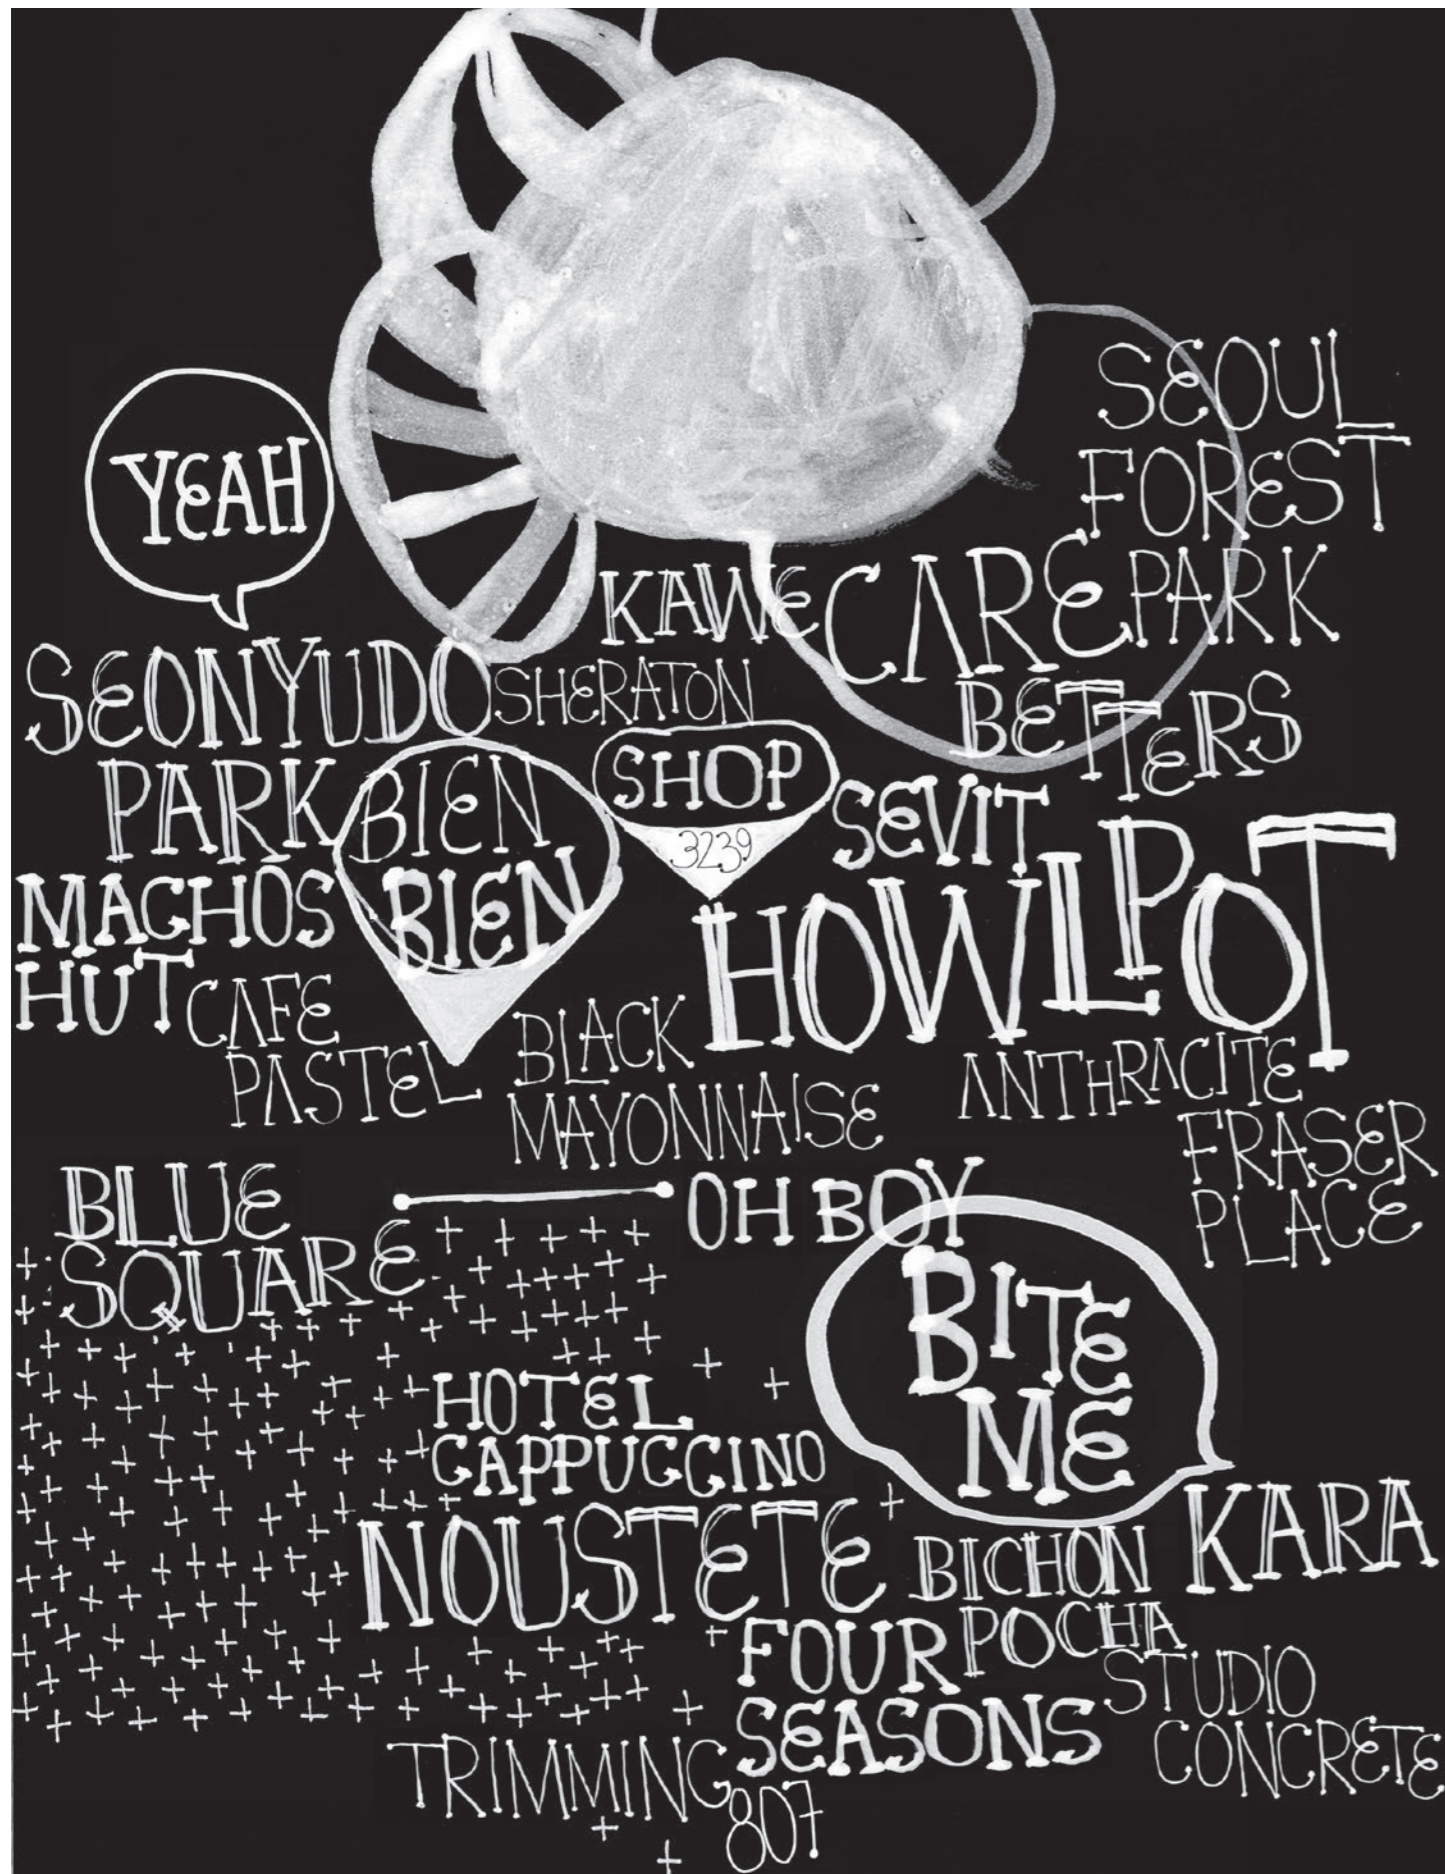 SEOUL
FOREST
PARK
YEAH
KAWE
CARE
SEONYUDO
PARK
SHERATON
BETTERS
BIEN
BIEN
SHOP
3239
SEVIT
MACHOS
HUT
HOWLPOT
CAFE
PASTEL
BLACK
MAYONNAISE
ANTHRACITE
FRASER
PLACE
BLUE
SQUARE
OH BOY
BITE
ME
HOTEL
CAPPUCCINO
NOUSTETE
BICHON
POCHA
KARA
FOUR
SEASONS
STUDIO
CONCRETE
TRIMMING
807